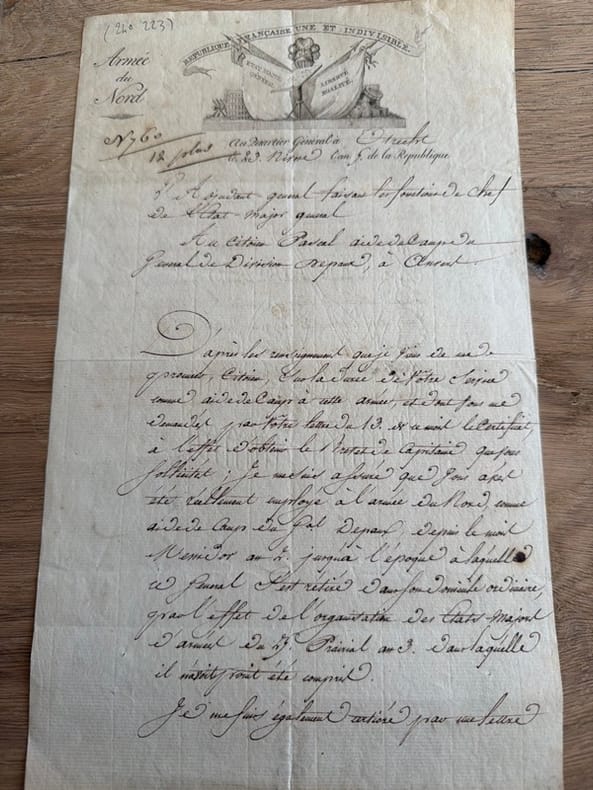 (240 223)
REPUBLIQUE FRANÇAISE UNE ET INDIVISIBLE
ETAT MAJOR GÉNÉRAL
LIBERTÉ EGALITÉ
Armée
du
Nord
N 760
12
Au Quartier Général à Utrecht
le 23 Nivose L'an 5 de la République
L'Adjudant general faisant les fonctions de chef
de l'Etat-Major general
Au Citoyen Pascal aide de Camp du
General de Division Depaux, à
D'après les renseignemens que je viens de me
procurer, Citoyen, sur la durée de Votre Service
comme aide de Camp à cette armée, et dont Vous me
demandés par Votre lettre du 13. de ce mois le Certificat,
à l'effet d'obtenir le Brevet de Capitaine que vous
sollicitez; Je me suis assuré que Vous avés
été réellement employé à l'armée du Nord, comme
aide de Camp du Gal Depaux depuis le mois
Messidor an 2. jusqu'à l'époque à laquelle
ce General s'est rétiré dans son domicile ordinaire,
par l'effet de l'organisation des Etats Majors
d'armées du Prairial an 3. dans laquelle
il n'avoit point été compris.
Je me suis également par une lettre